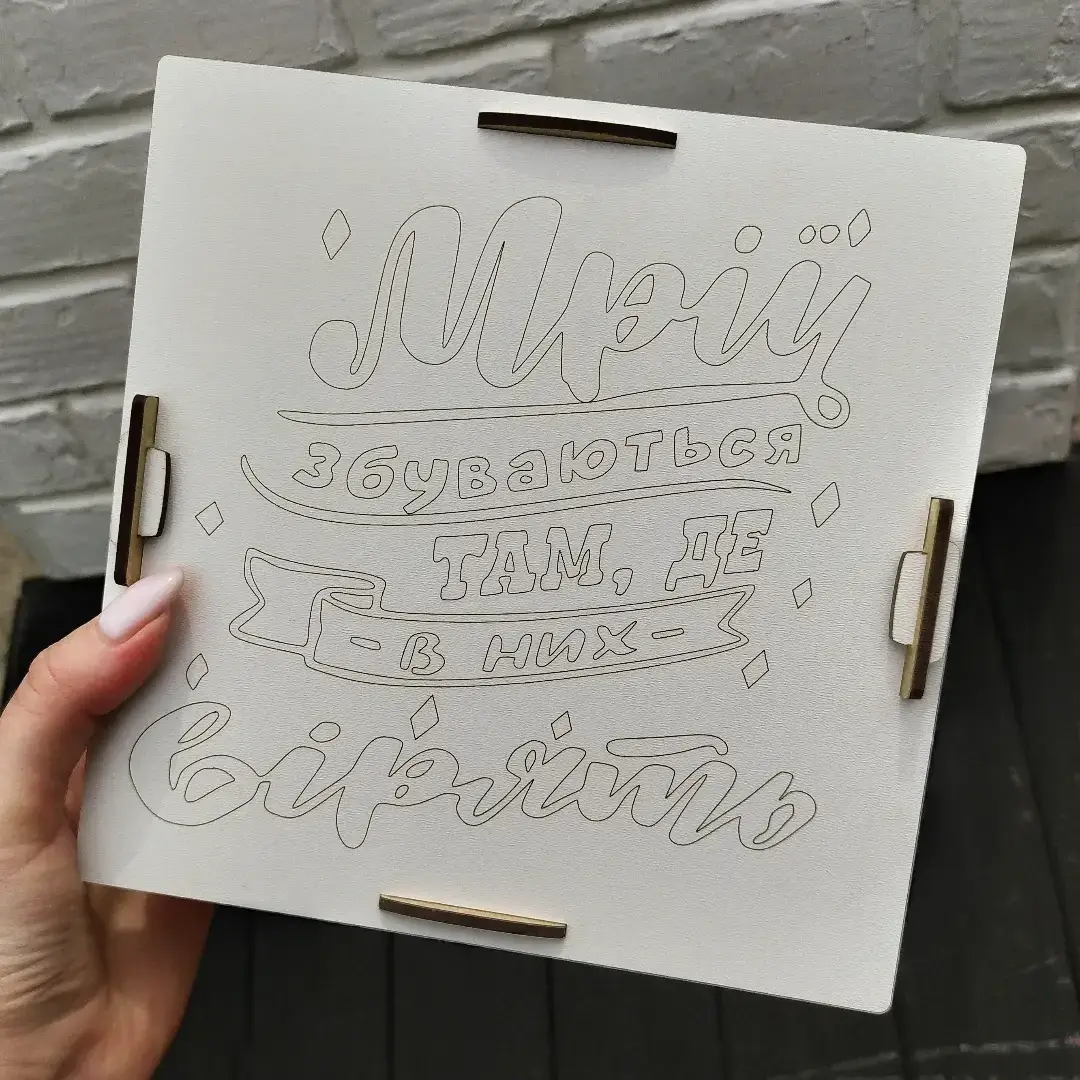 Мрії
збуваються
ТАМ, ДЕ
- в них -
вірять